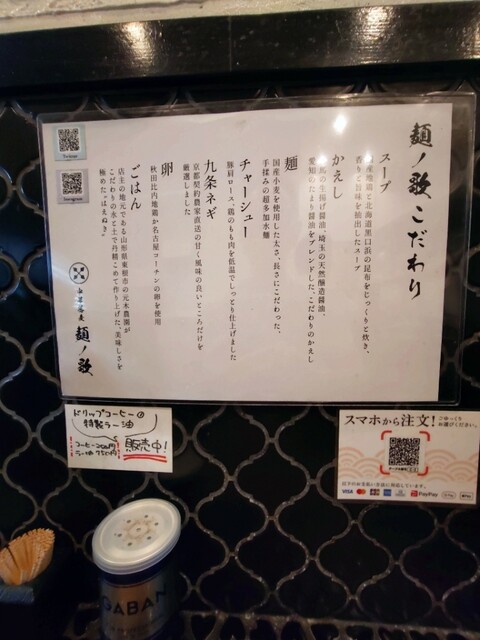 麺ノ歌こだわり
スープ
産地鶏と北海道黒口浜の昆布をじっくりと炊き、
香りと旨味を抽出したスープ
かえし
島の生揚げ醤油、埼玉の天然醸造醤油、
愛知のたまり醤油をブレンドした、こだわりのかえし
麺
国産小麦を使用した太さ、長さにこだわった、
手揉みの超多加水麺
チャーシュー
豚肩ロース、鶏のもも肉を低温でしっとり仕上げました
九条ネギ
京都契約農家直送の甘く風味の良いところだけを
厳選しました
卵
秋田比内地鶏か名古屋コーチンの卵を使用
ごはん
店主の地元である山形県東根市の元木農園が
こだわりの水と土で丹精こめて作り上げた、美味しさを
極めた“はえぬき”
麺ノ歌
Instagram
ドリップコーヒー
特製ラー油
コーヒー200円
ラー油750円
販売中!
スマホから注文!
ごゆっくり
お選びください。
VISA
PayPay
GABAN